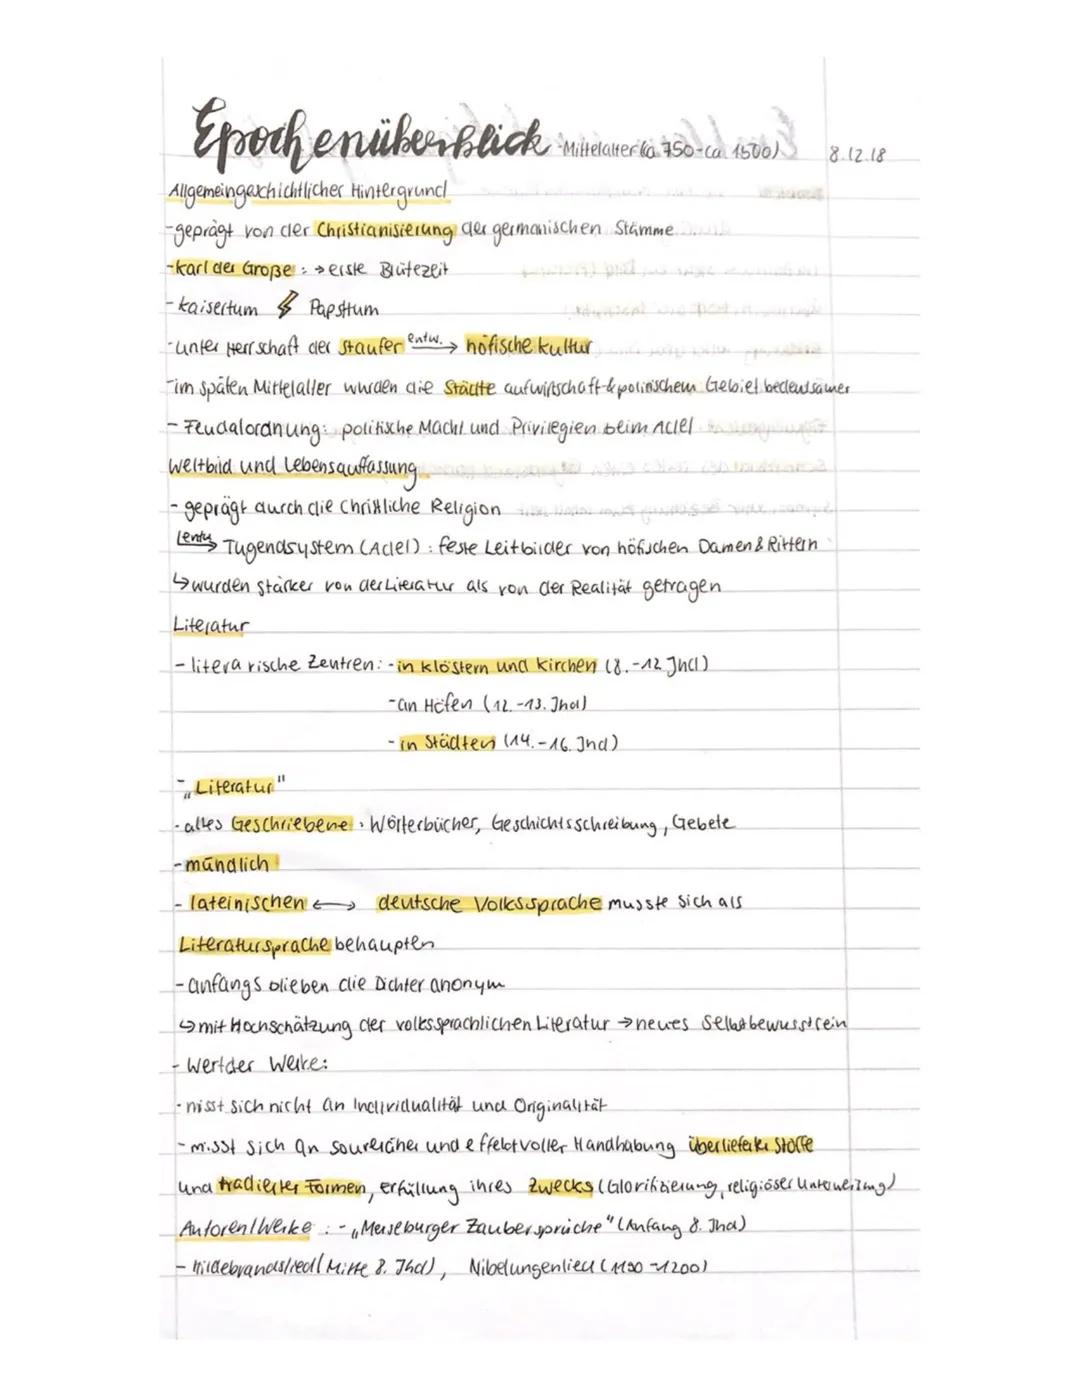 Epochenüberblick -Mittelalter (ca 750-ca 1500) 8.12.18
Allgemeingeschichtlicher Hintergrund
-geprägt von der Christianisierung der germanischen Stämme
-Karl der Große: →erste Blütezeit
-Kaisertum ⚡ Papsttum
-unter Herrschaft der Staufer entw. → höfische Kultur
-im späten Mittelalter wurden die Städte auf wirtschaft & politischem Gebiet bedeutsamer
- Feudalordnung: politische Macht und Privilegien beim Adel
Weltbild und Lebensauffassung
- geprägt durch die Christliche Religion
↳entw Tugendsystem (Adel): feste Leitbilder von höfischen Damen & Rittern
↳wurden stärker von der Literatur als von der Realität getragen
Literatur
- literarische Zentren: -in Klöstern und Kirchen (8.-12. Jhd)
-an Höfen (12.-13. Jhd)
- in Städten (14.-16. Jhd)
- „Literatur"
- alles Geschriebene: Wörterbücher, Geschichtsschreibung, Gebete
- mündlich
- lateinischen ⟷ deutsche Volkssprache musste sich als
Literatursprache behaupten
- anfangs blieben die Dichter anonym
↳mit Hochschätzung der volkssprachlichen Literatur → neues Selbstbewusstsein
- Wert der Werke:
- misst sich nicht an Individualität und Originalität
- misst sich an souveräner und effektvoller Handhabung überlieferter Stoffe
und tradierter Formen, erfüllung ihres Zwecks (Glorifizierung, religiöser Unterweisung)
Autoren/Werke: - „Merseburger Zaubersprüche" (Anfang 8. Jhd)
- Hildebrandslied (Mitte 8. Jhd), Nibelungenlied (1190-1200)